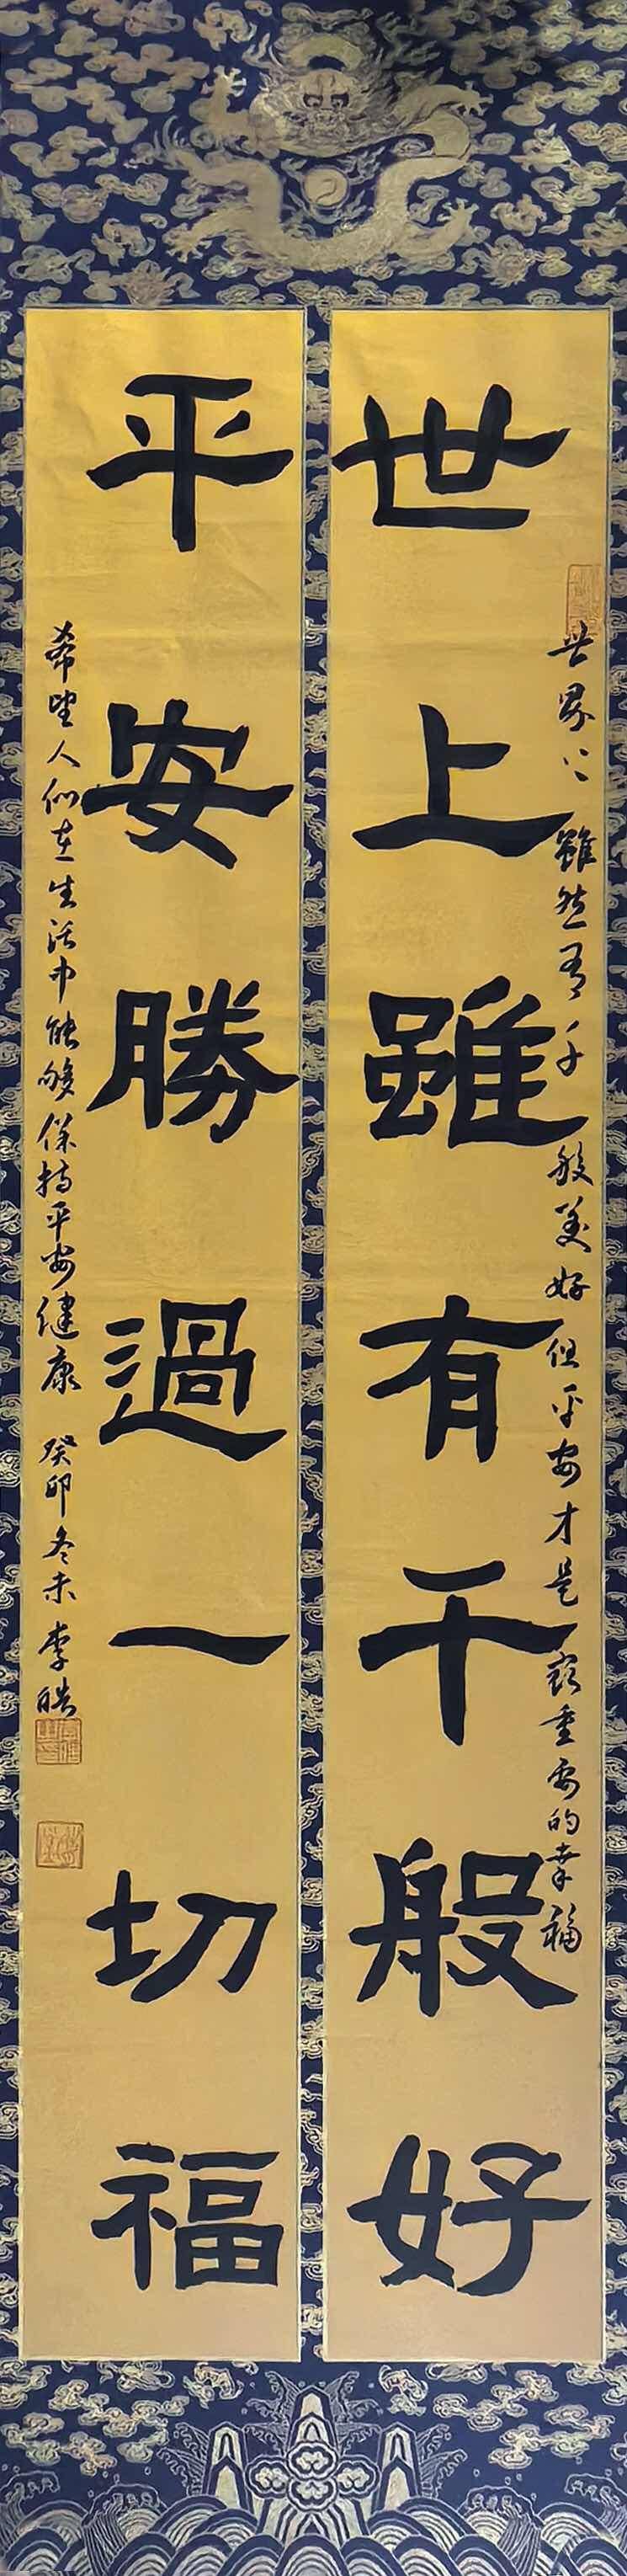 世上雖有千般好
世界上雖然有千般美好但平安才是最重要的幸福
平安勝過一切福
希望人们在生活中能够保持平安健康 癸卯冬末 李皓